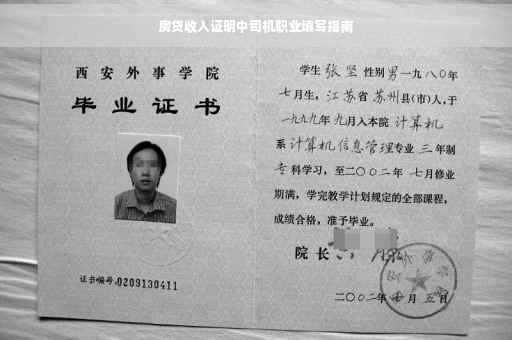 房贷收入证明中司机职业填写指南
西安外事学院
毕业证书
证书编号:0209130411
学生张坚性别男一九八〇年
七月生，江苏省苏州县(市)人,于
一九九九年九月入本院计算机
系计算机信息管理专业三年制
专科学习，至二〇〇二年七月修业
期满，学完教学计划规定的全部课程，
成绩合格，准予毕业。
院长
二〇〇二年 月五日